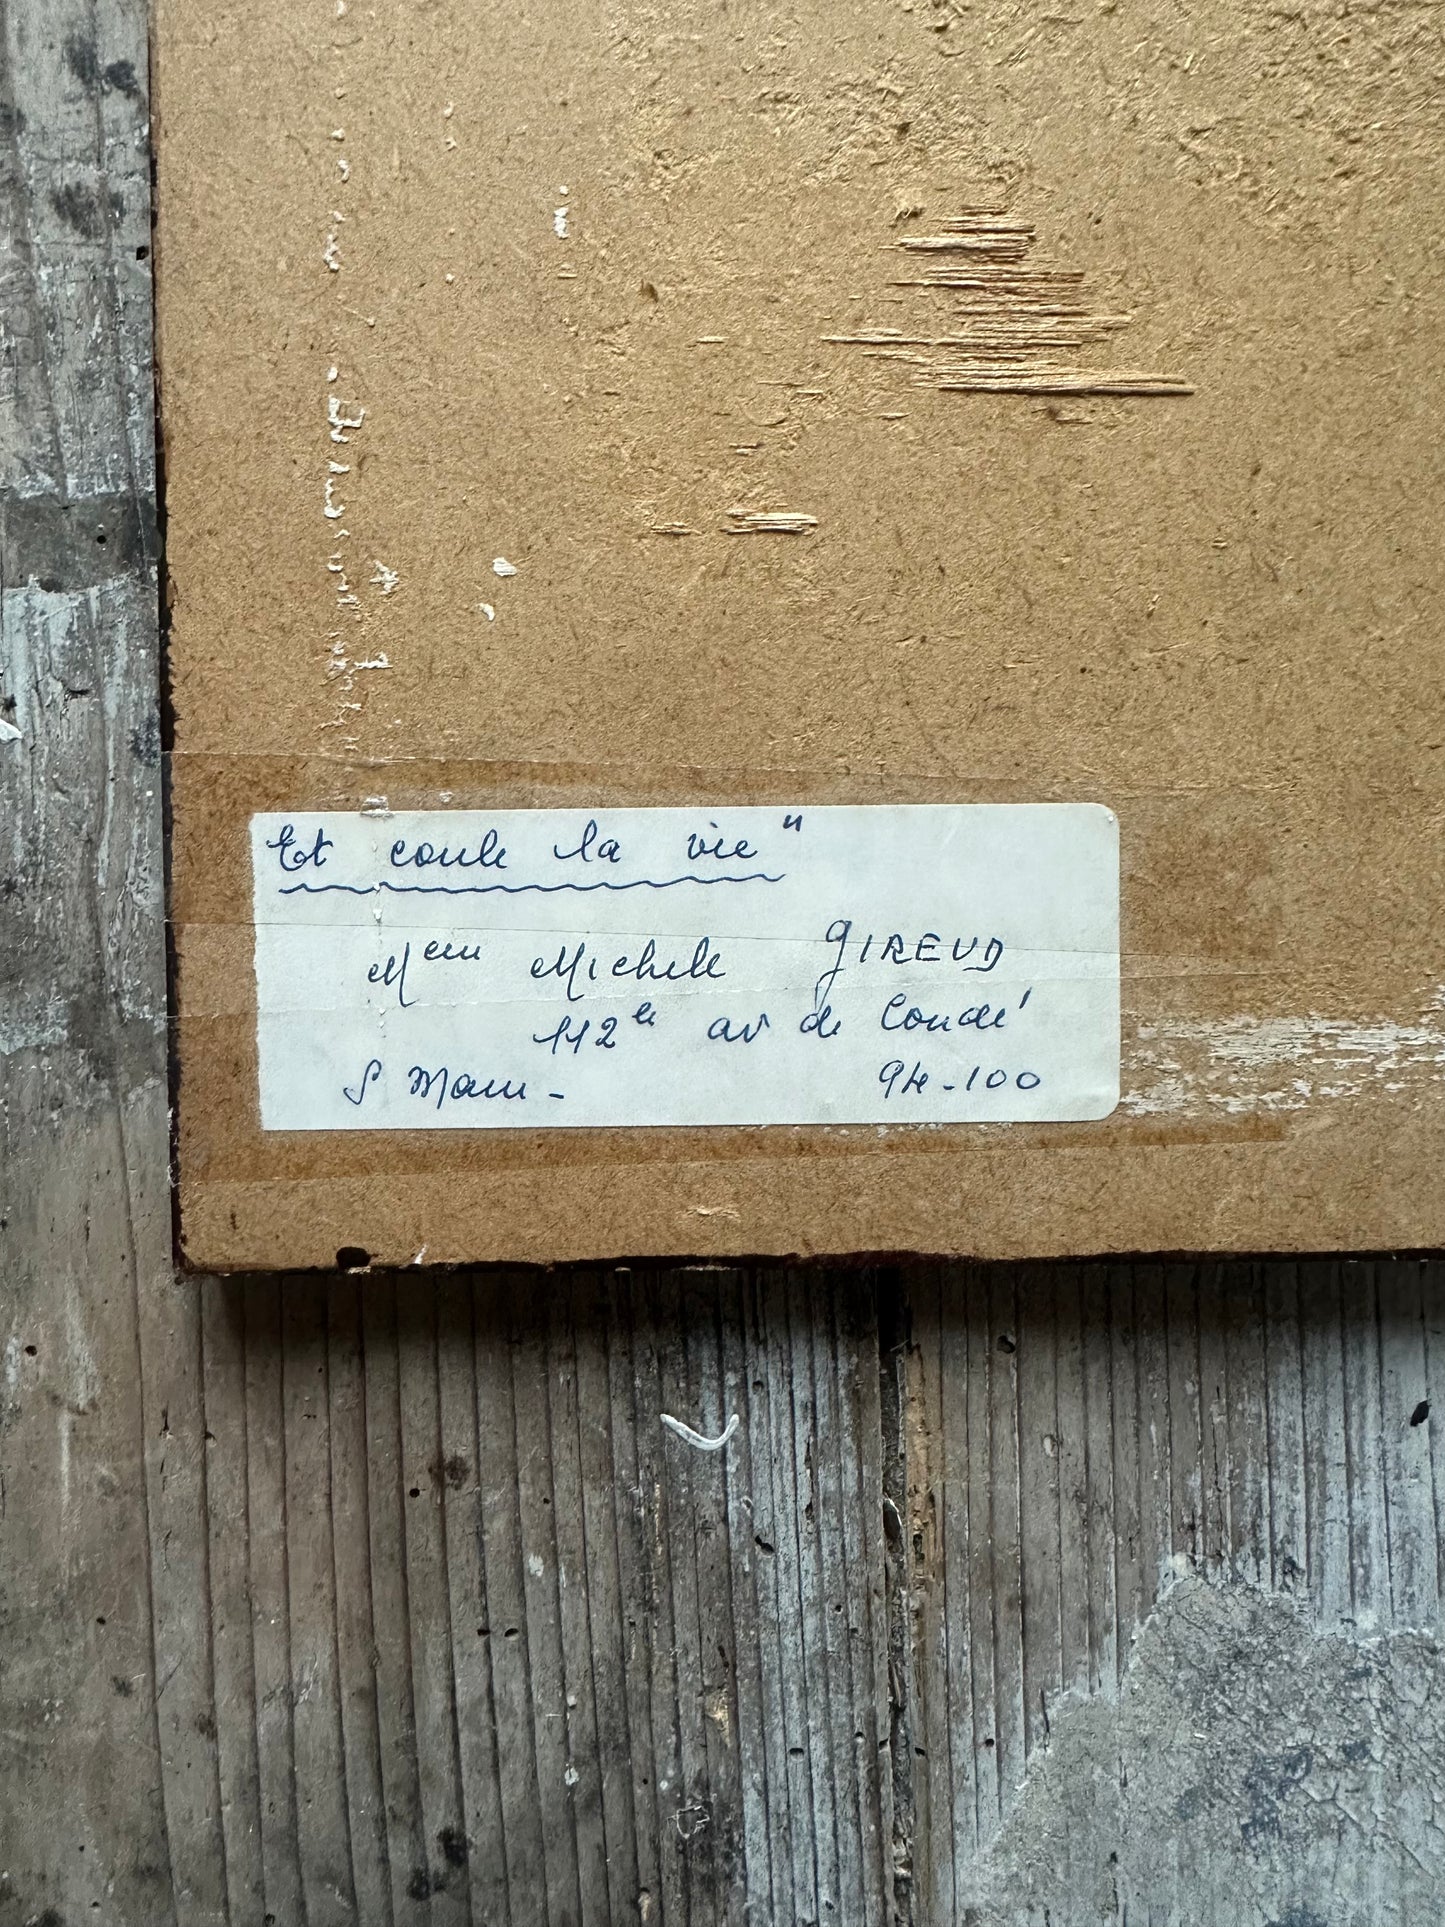 Et coule la vie"
Mem Michele GIREUD
112 le av de Condé
S Maur -
94-100